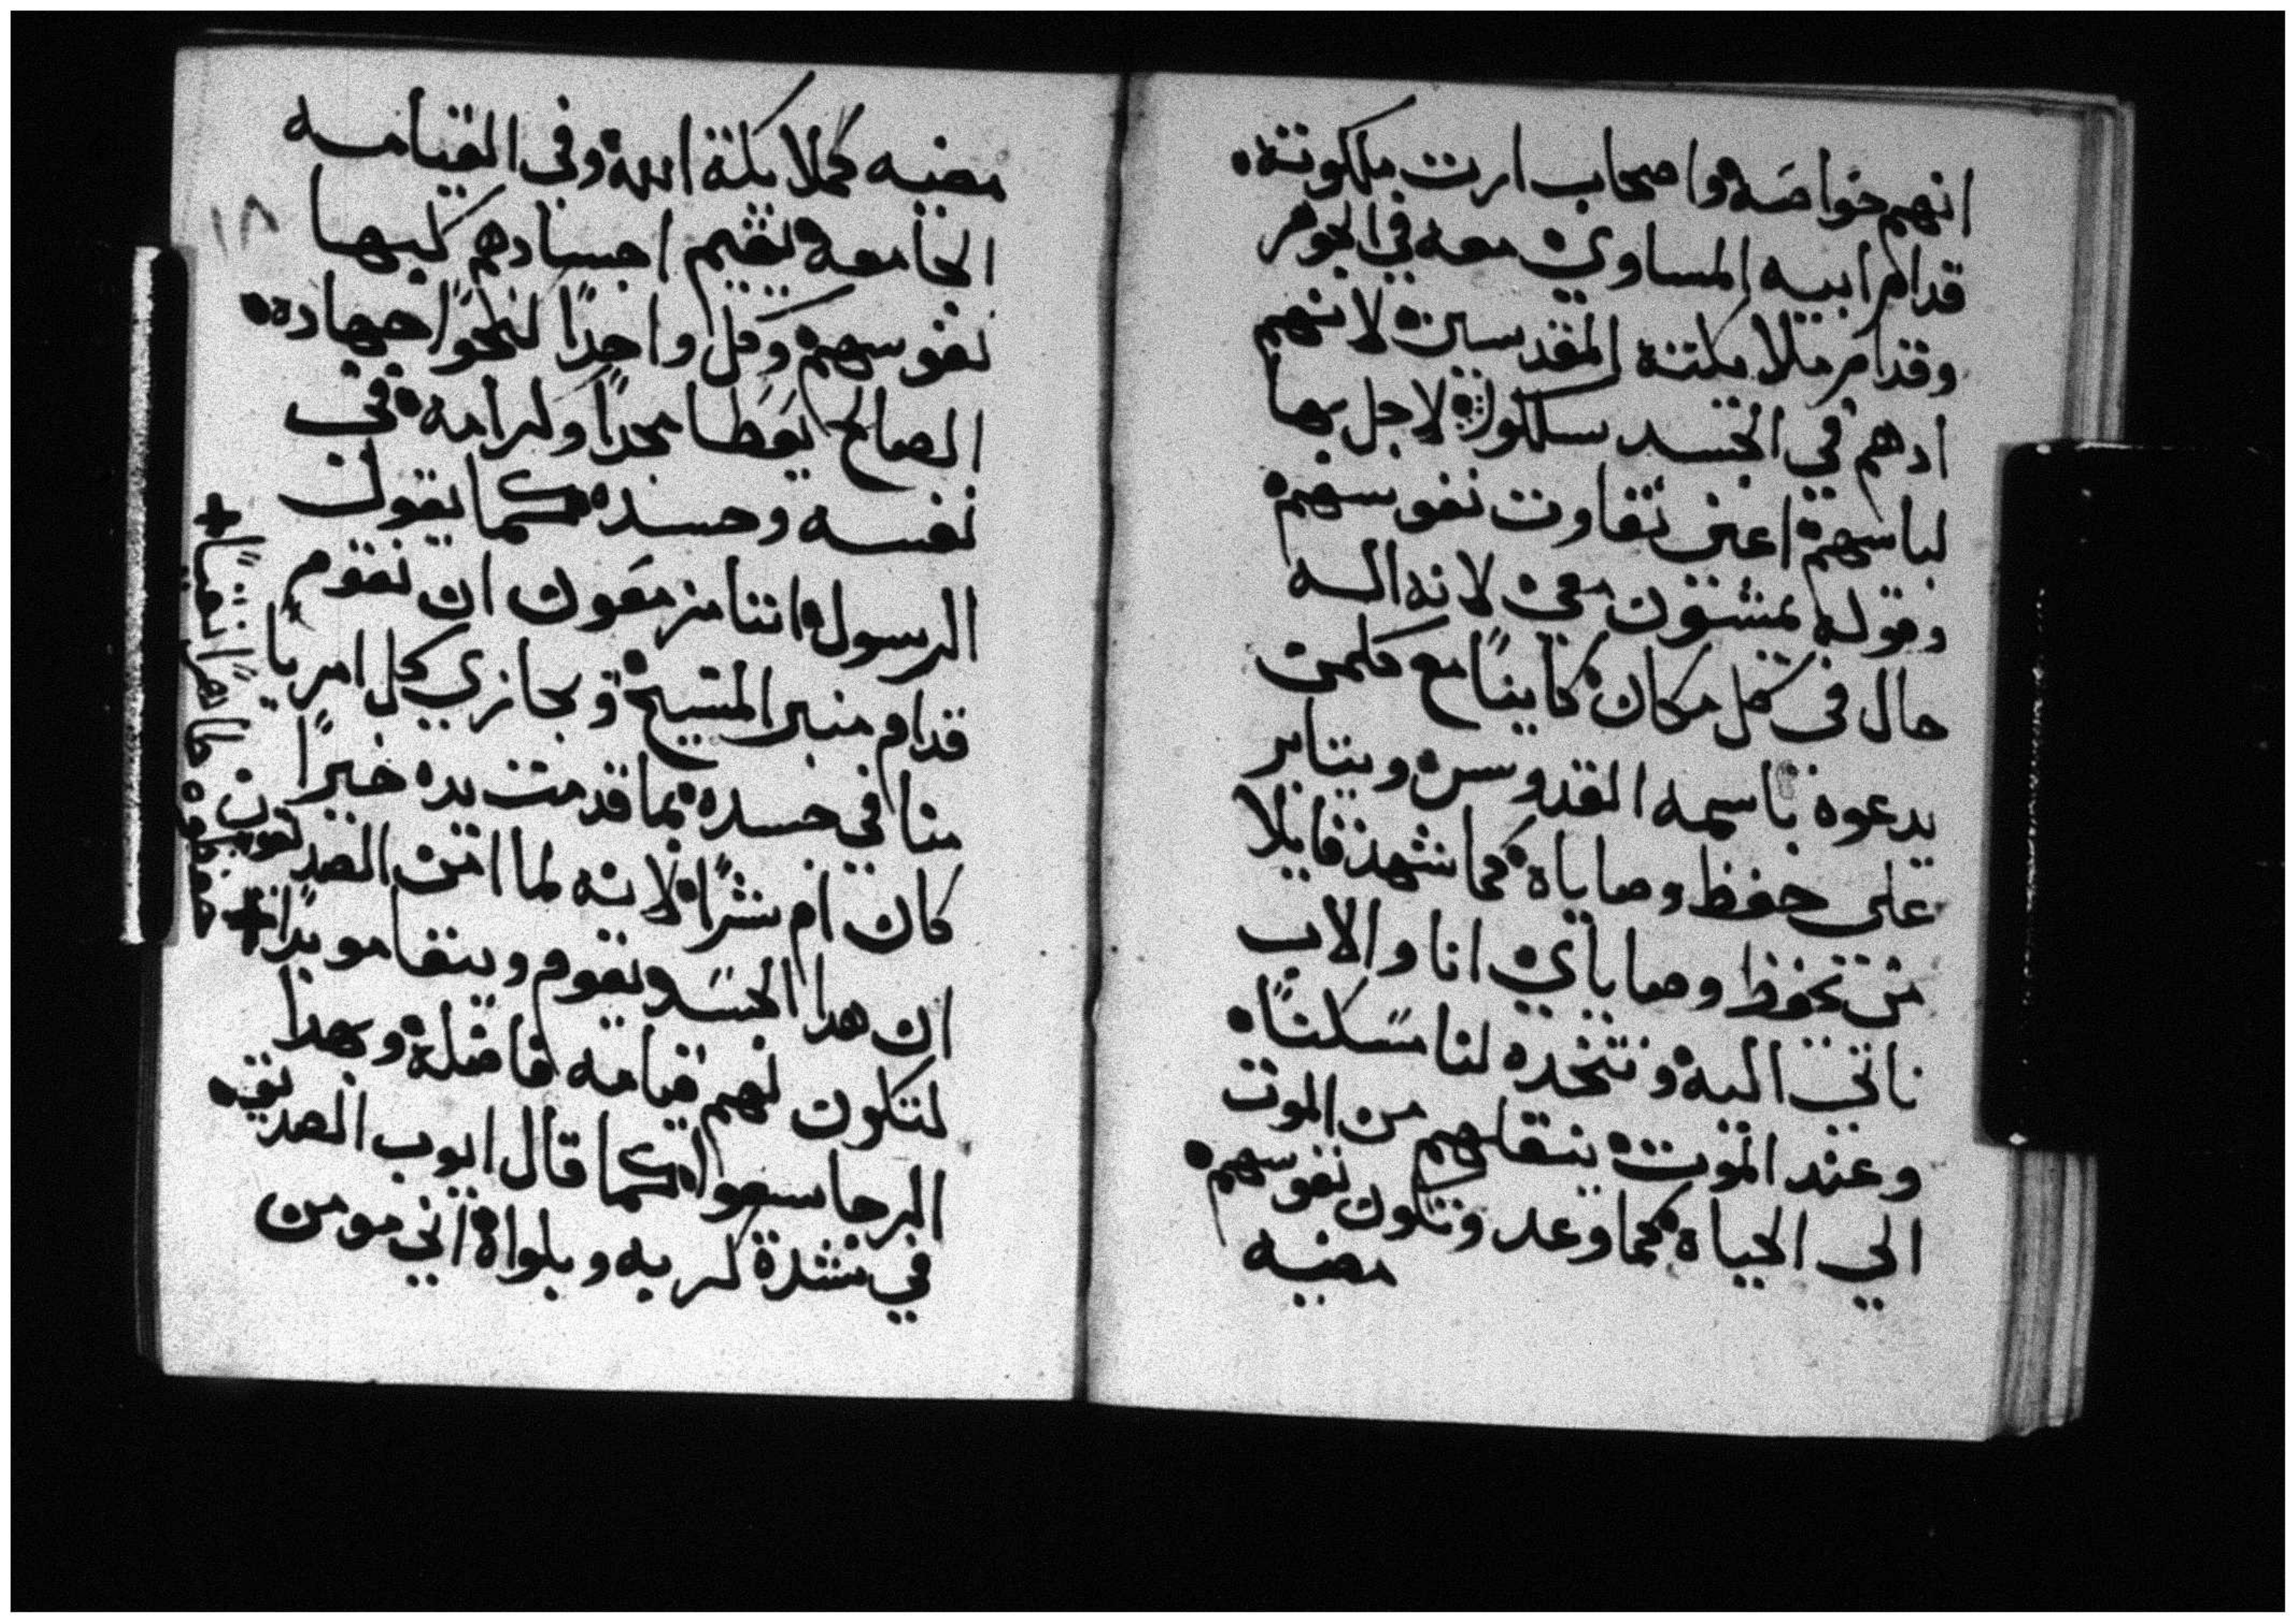 انهم خواصه واصحاب ارت ملكوته.
قدام ابيه المساوي معه في الجوهر
وقدام ملايكته المقدسين لانهم
ادهم في الجسد سلكوا لاجل بها
لباسهم اعني نقاوت نفوسهم
وقوله يمشون معي لانه اله
حال في كل مكان كاينًا مع كلمن
يدعوه باسمه القدوس ويتابر
على حفظ وصاياه كما شهد قايلا
من يحفظ وصاياي انا والاب
ناتي اليه ونتخده لنا مسكنًا
وعند الموت ينقلهم من الموت
الي الحياه كما وعد وتكون نفوسهم
مضيه
مضيه كملايكة الله وفي القيامه
١٨
الجامعه تقيم اجسادهم كبها
نفوسهم وكل واحدًا لنحوا جهاده
الصالح يعطا مجدًا وكرامه في
نفسه وجسده كما يقول
الرسول اننا مزمعون ان نقوم
قدام منبر المسيح ويجازي كل امريا
منا في جسده بما قدمت يده خيرًا
كان ام شرًا لانه لما امن الصديقون
ان هدا الجسد يقوم ويبقا موبدًا +
+ طاهرًا نقيًا
لتكون لهم قيامه فاضلة وبهدا
الرجا سعوا كما قال ايوب الصديق
في شدة كربه وبلواه اني مومن